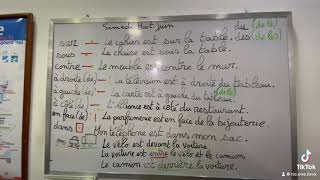 Samedi Huit juin
du (de le)
sur - Le cahier est sur la table. des (de les)
sous - La chaise est sous la table.
contre - Le meuble est contre le mur.
à droite (de) - La télévision est à droite du tableau.
à gauche (de) - La carte est à gauche du tableau. (de le)
à côté (de) - L'Alliance est à côté du restaurant.
en face (de) - La parfumerie est en face de la bijouterie.
dans - Mon téléphone est dans mon sac.
Le vélo est devant la voiture
La voiture est entre le vélo et le camion
Le camion est derrière la voiture.
TikTok